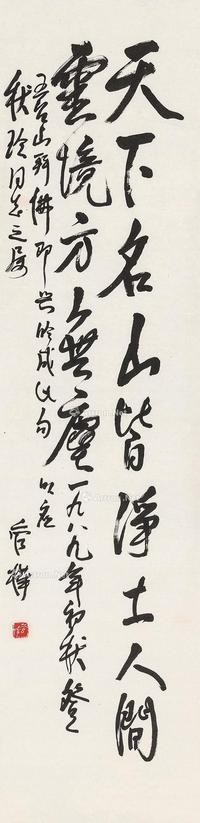 天下名山皆淨土人間
靈境方為無塵一九八九年初秋登
五台山拜佛即興吟成此句以應
秋玲同志之屬
管樺